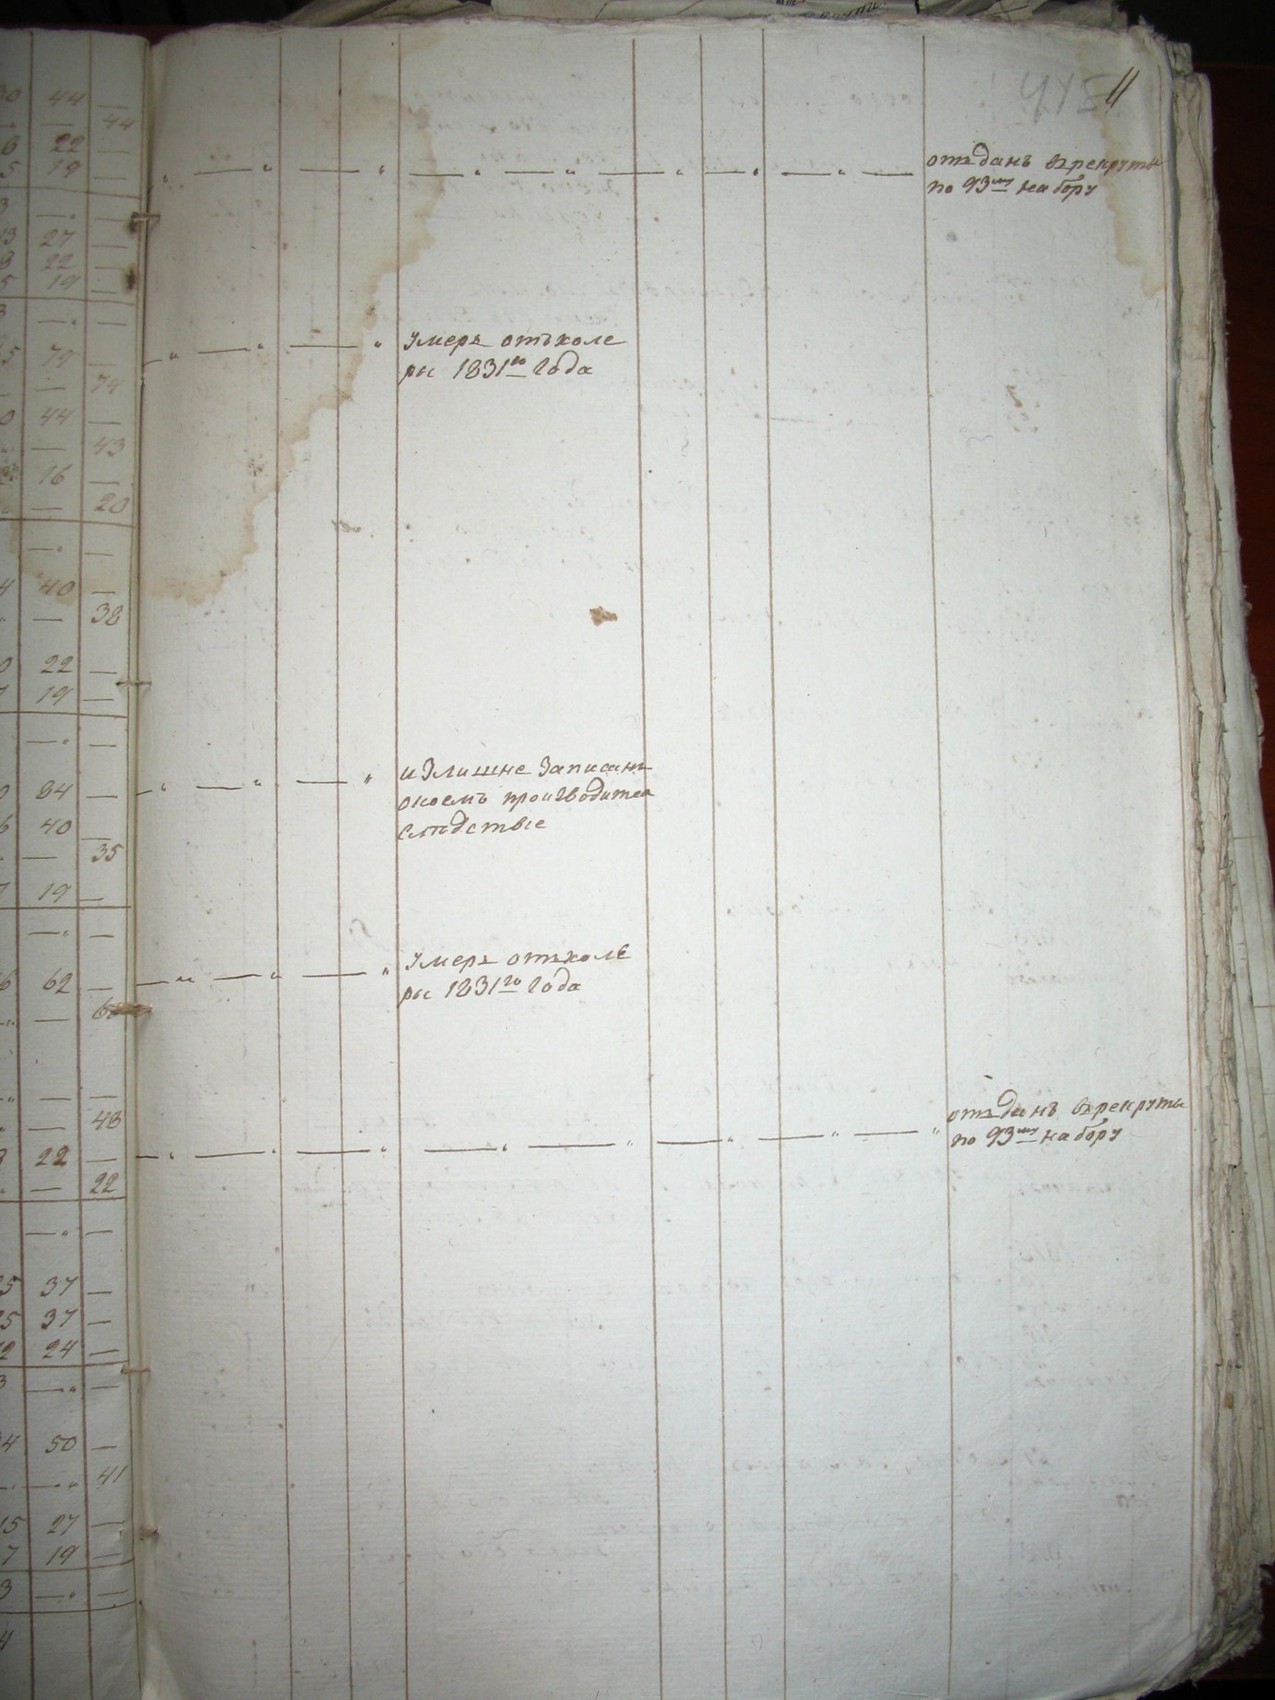 11
отъданъ въ рекруты
по 93му набору
умеръ отъ холе
ры 1831го года
излишне записанъ
окоемъ производится
следствіе
умеръ отъ холе
ры 1831го года
отъданъ въ рекруты
по 93му набору
44
44
22
19
27
22
19
79
74
44
43
16
20
40
38
22
19
84
40
35
19
62
48
22
22
37
37
24
50
41
15 27
7 19